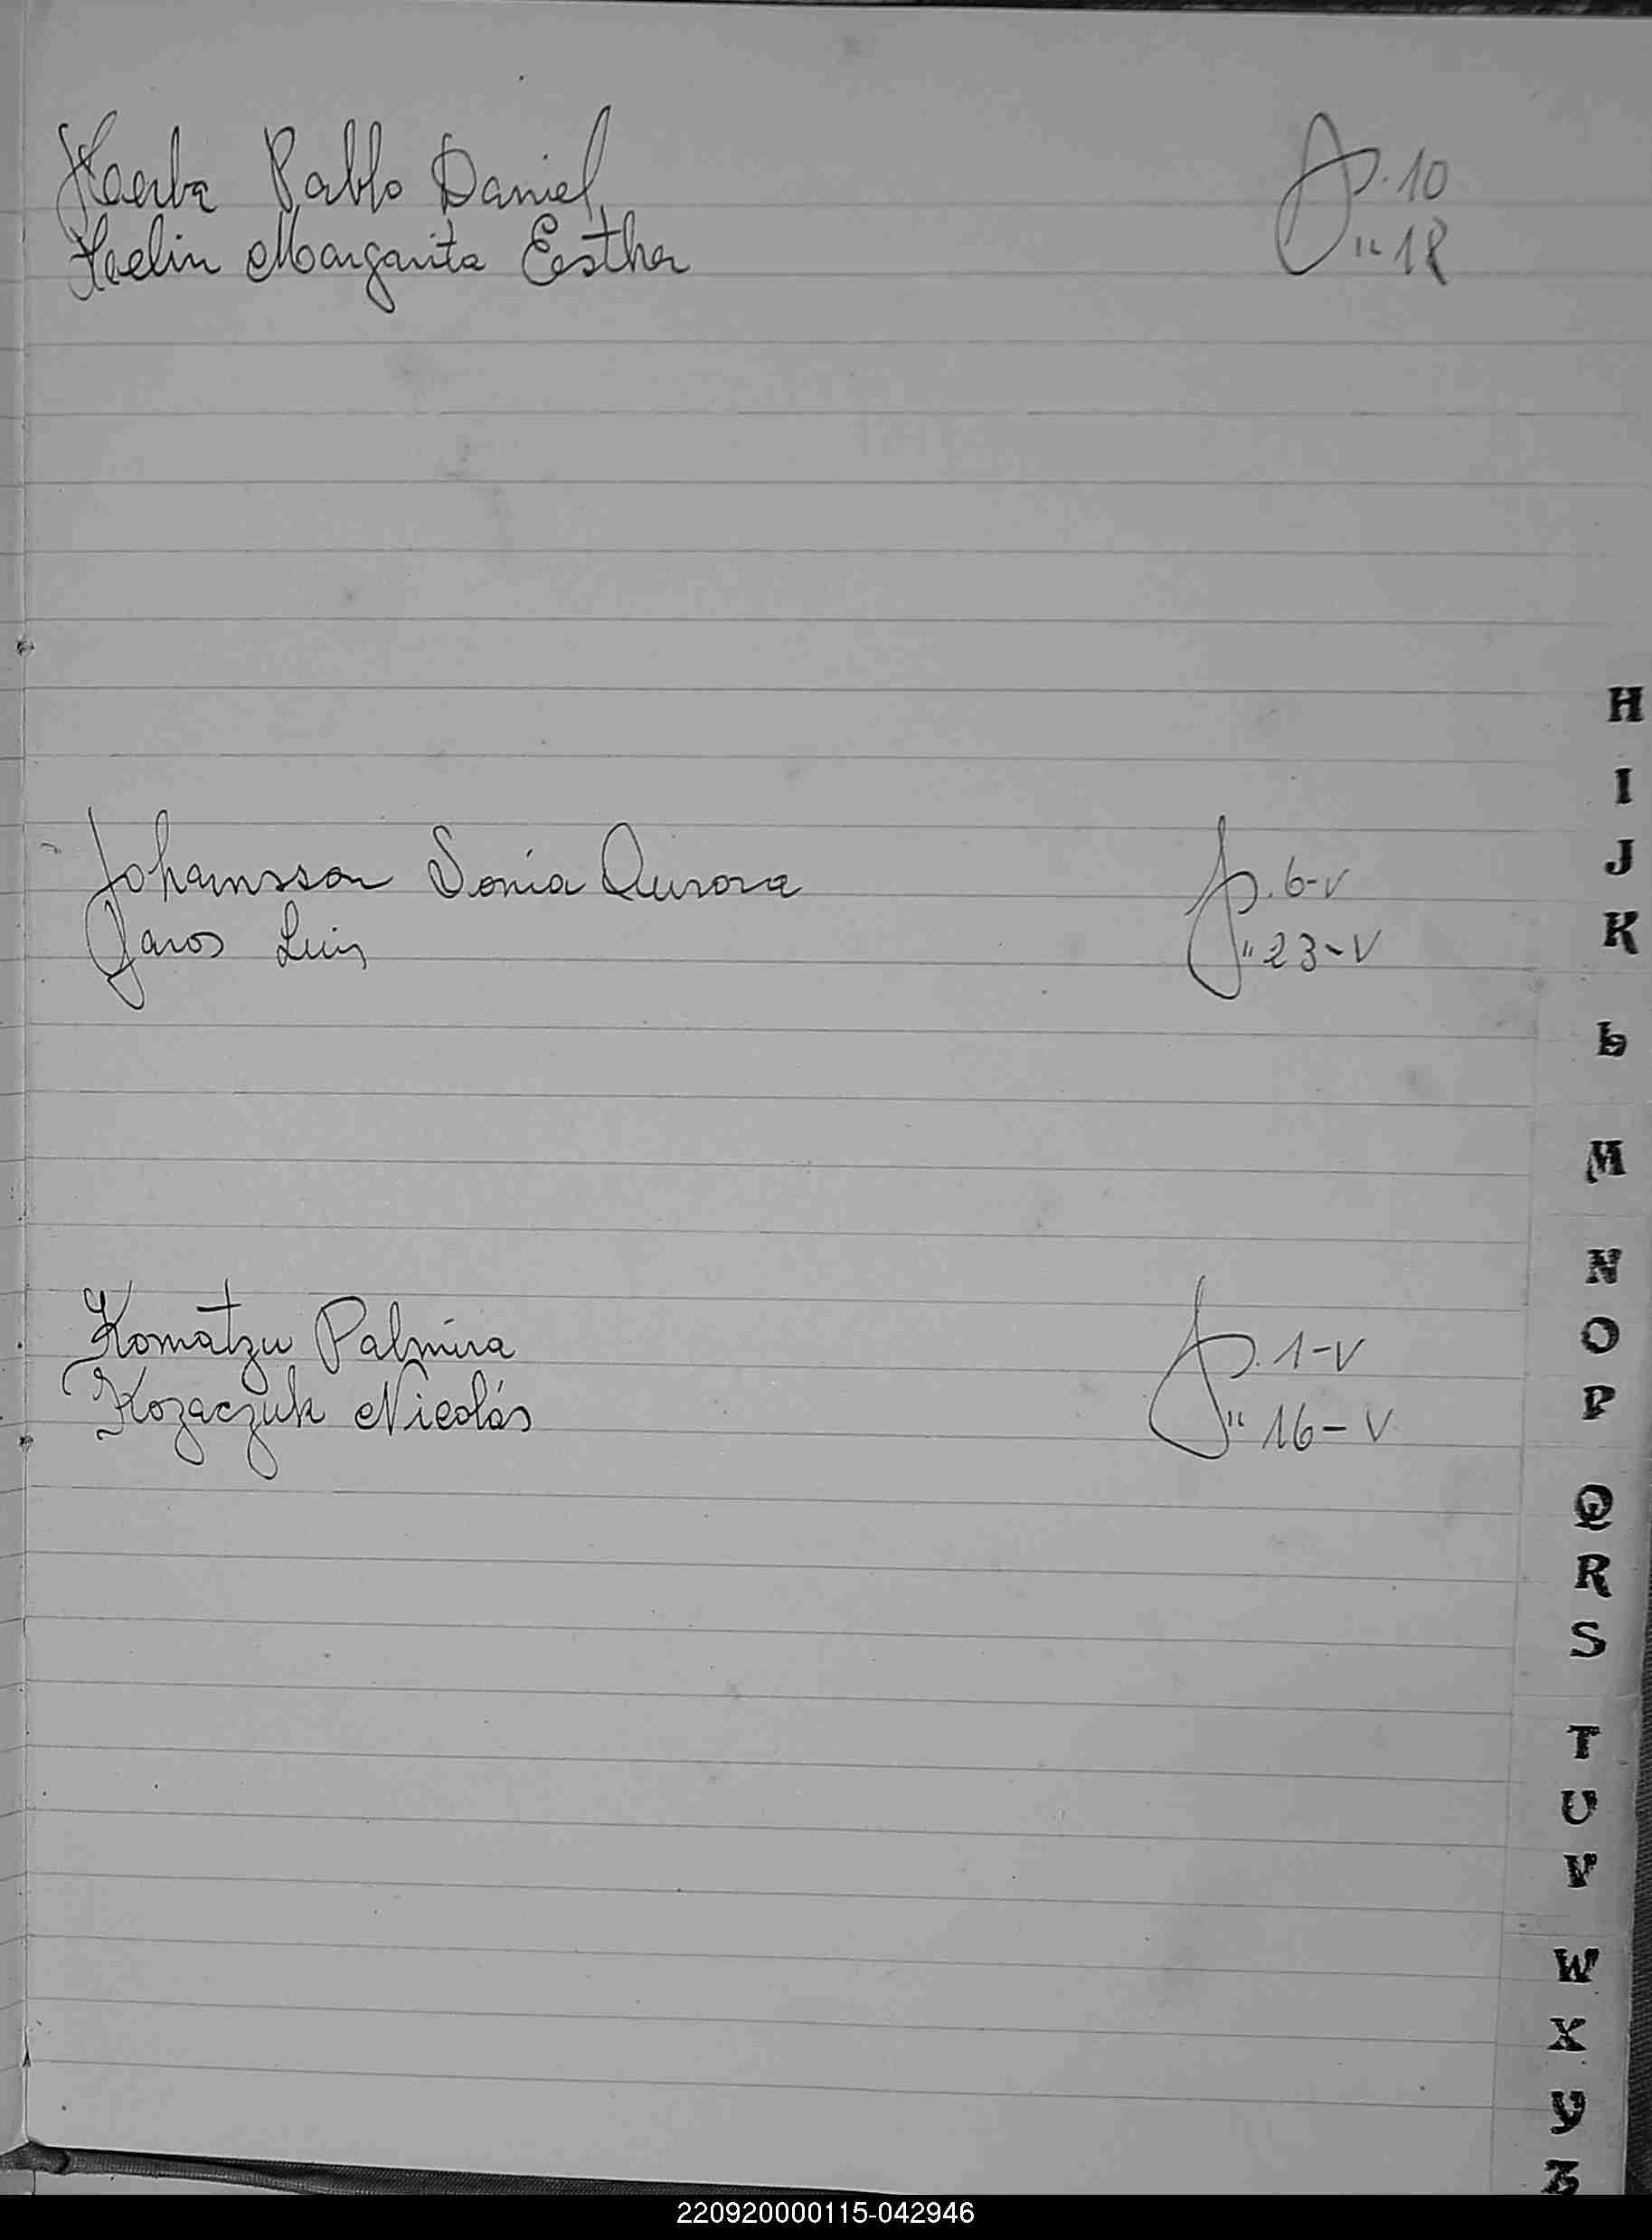 Herba Pablo Daniel f. 10
Haelin Margarita Esther " 18
Johamsson Sonia Aurora f. 6-V
Jaros Luis " 23-V
Komatzu Palmira f. 1-V
Kozaczuk Nicolás " 16-V
H
I
J
K
L
M
N
O
P
Q
R
S
T
U
V
W
X
Y
Z
220920000115-042946